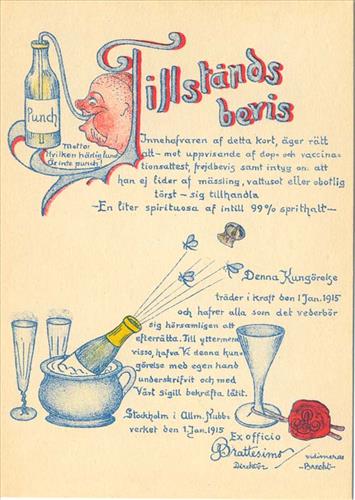 Tillstånds
bevis
Punch
Motto:
Hvilken härlig lund
Är inte punch!
Innehafvaren af detta kort, äger rätt
att - mot uppvisande af dop- och vaccina-
tionsattest, frejdbevis samt intyg om att
han ej lider af mässling, vattusot eller obotlig
törst - sig tillhandla
- En liter spirituosa af intill 99% sprithalt -
Denna Kungörelse
träder i kraft den 1 Jan. 1915
och hafver alla som det vederbör
sig hörsamligen att
efterrätta. Till yttermera
visso, hafva Vi denna kun-
görelse med egen hand
underskrifvit och med
Vårt sigill bekräfta låtit.
Stockholm i Allm. Nubb-
verket den 1. Jan. 1915
Ex officio
Brattesimo
Direktör
vidimeras
-Brecht-